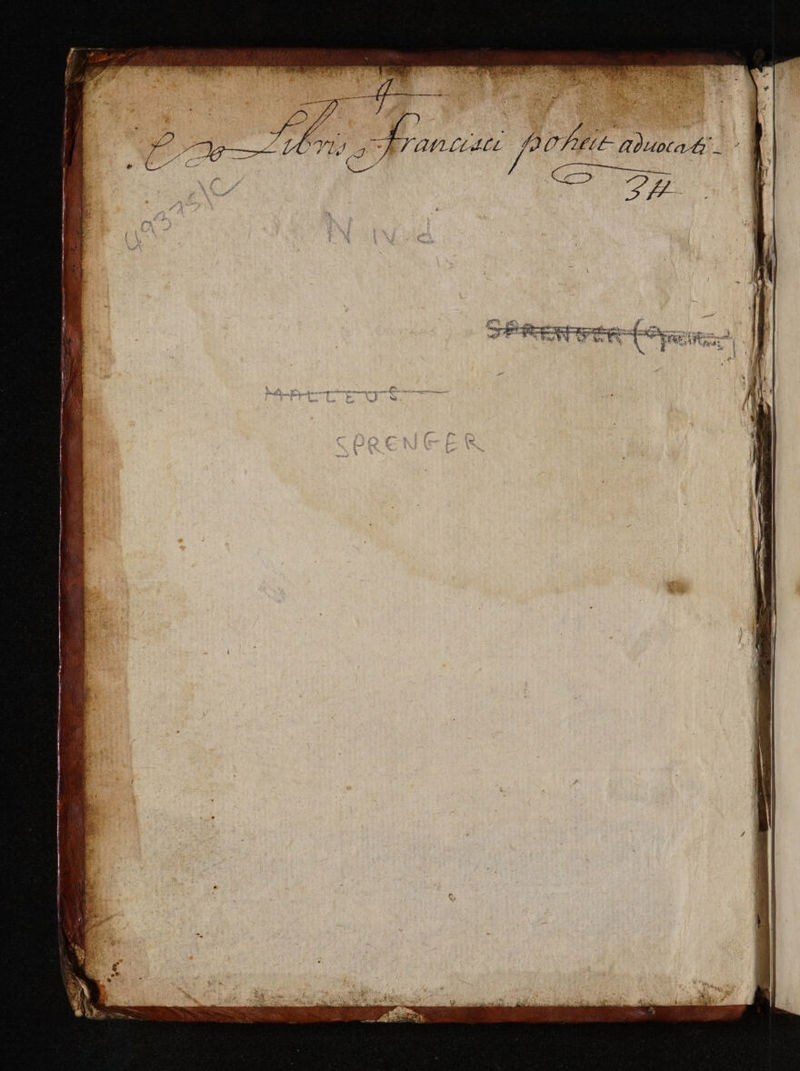 Ex Libris Francisci poheit aduocati
34
49375/C
N IV d
SPRENGER (
MALLEUS
SPRENGER